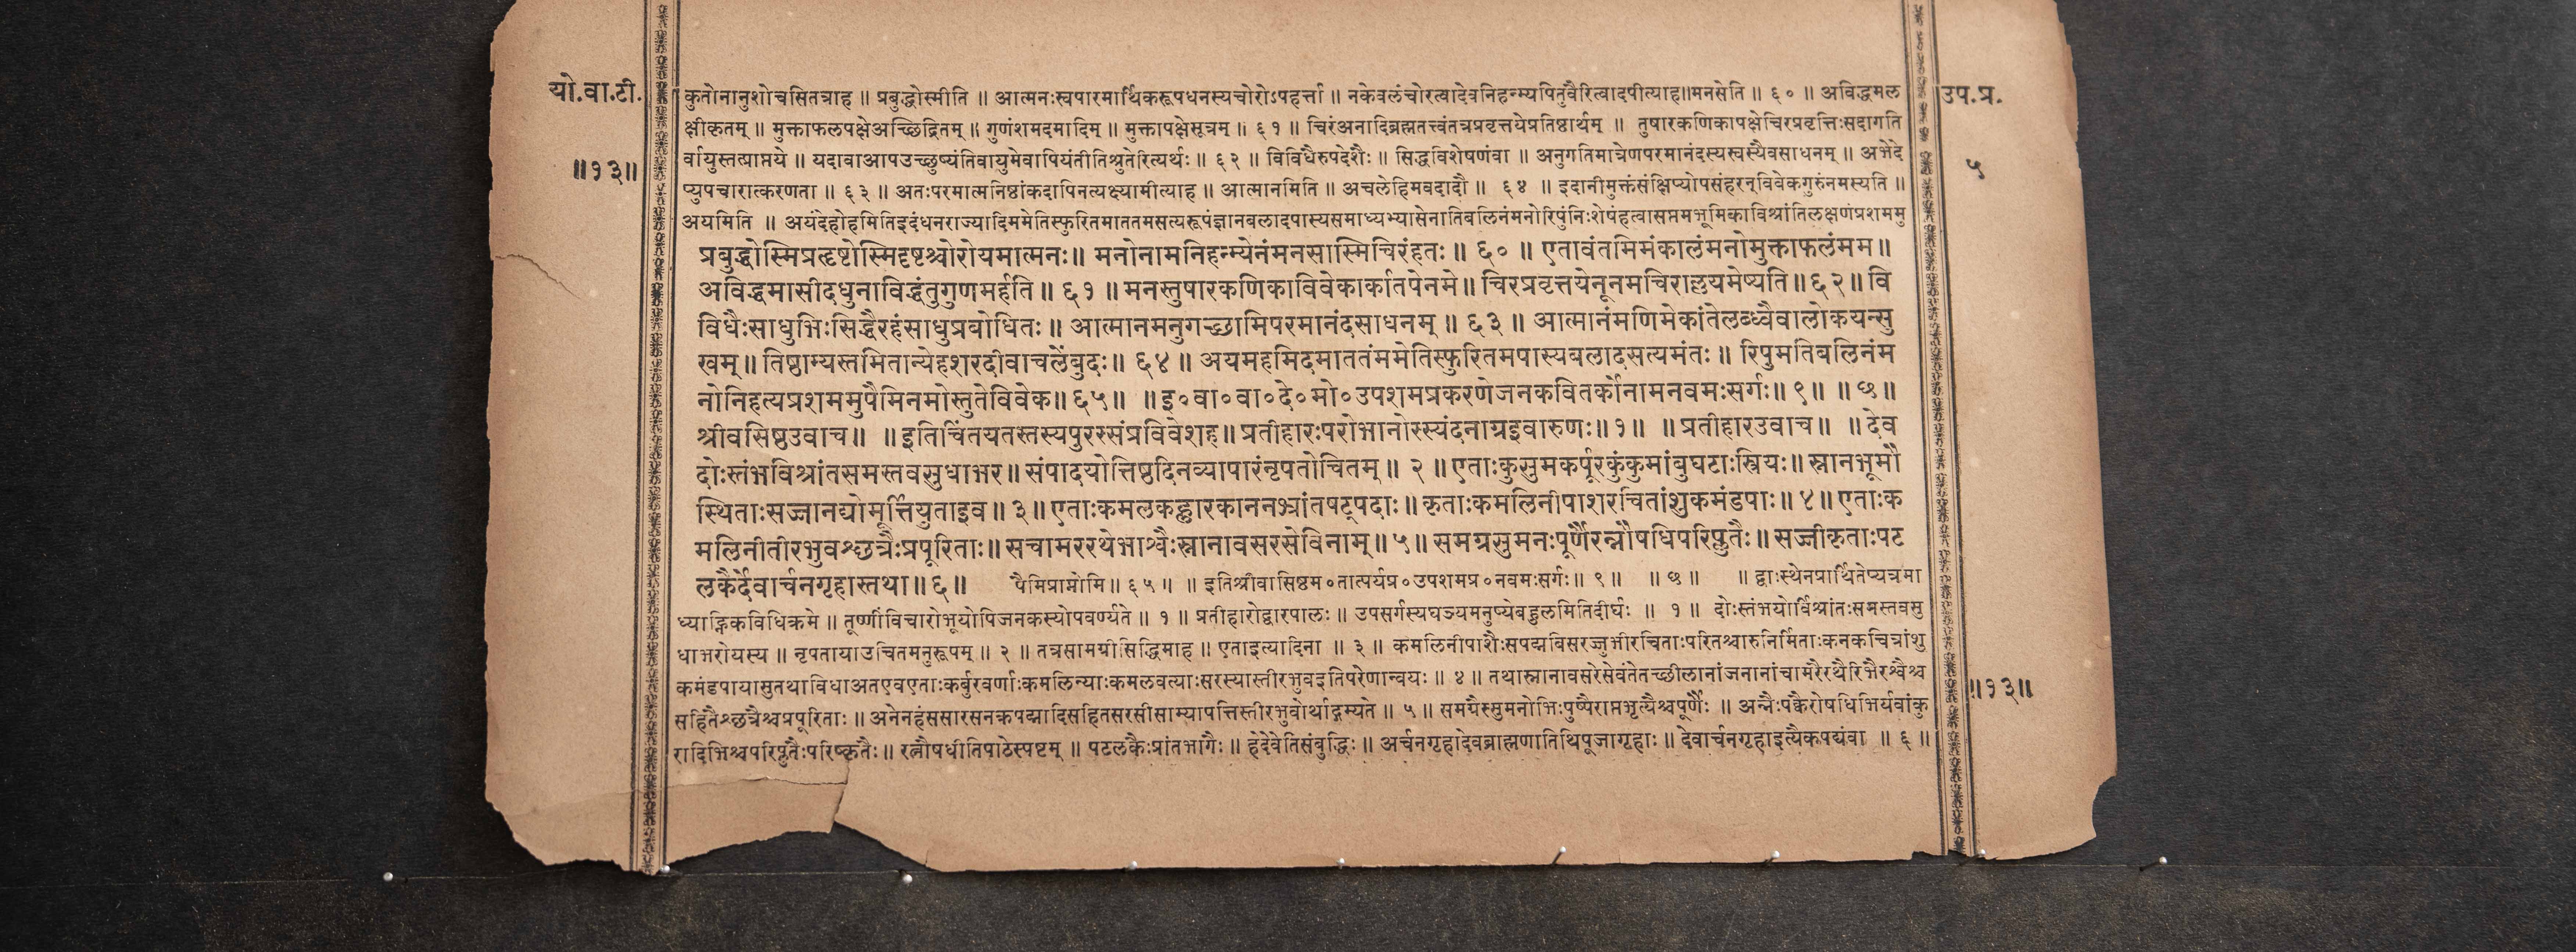 यो.वा.टी.
॥१३॥
कुतोनानुशोचसितत्राह ॥ प्रबुद्धोस्मीति ॥ आत्मनःस्वपारमार्थिकरूपधनस्यचोरोऽपहर्त्ता ॥ नकेवलंचोरत्वादेवनिहन्म्यपितुवैरित्वादपीत्याह॥मनसेति ॥ ६० ॥ अविद्धमल
क्षीकृतम् ॥ मुक्ताफलपक्षेअच्छिद्रितम् ॥ गुणंशमदमादिम् ॥ मुक्तापक्षेसूत्रम् ॥ ६१ ॥ चिरंअनादिब्रह्मतत्त्वंतत्रप्रवृत्तयेप्रतिष्ठार्थम् ॥ तुषारकणिकापक्षेचिरप्रवृत्तिःसदागति
र्वायुस्तत्प्राप्तये ॥ यदावाआपउच्छुष्यंतिवायुमेवापियंतीतिश्रुतेरित्यर्थः ॥ ६२ ॥ विविधैरुपदेशैः ॥ सिद्धविशेषणंवा ॥ अनुगतिमात्रेणपरमानंदस्यस्वस्यैवसाधनम् ॥ अभेदे
प्युपचारात्करणता ॥ ६३ ॥ अतःपरमात्मनिष्ठांकदापिनत्यक्ष्यामीत्याह ॥ आत्मानमिति ॥ अचलेहिमवदादौ ॥ ६४ ॥ इदानीमुक्तंसंक्षिप्योपसंहरन्विवेकगुरुंनमस्यति ॥
अयमिति ॥ अयंदेहोहमितिइदंधनराज्यादिममेतिस्फुरितमाततमसत्यरूपंज्ञानबलादपास्यसमाध्यभ्यासेनातिबलिनंमनोरिपुंनिःशेषंहत्वासप्तमभूमिकाविश्रांतिलक्षणंप्रशममु
प्रबुद्धोस्मिप्रहृष्टोस्मिदृष्टश्चोरोयमात्मनः॥ मनोनामनिहन्म्येनंमनसास्मिचिरंहतः ॥ ६० ॥ एतावंतमिमंकालंमनोमुक्ताफलंमम॥
अविद्धमासीदधुनाविद्धंतुगुणमर्हति ॥ ६१ ॥ मनस्तुषारकणिकाविवेकार्कातपेनमे॥ चिरप्रवृत्तयेनूनमचिराल्लयमेष्यति॥६२॥ वि
विधैःसाधुभिःसिद्धैरहंसाधुप्रबोधितः ॥ आत्मानमनुगच्छामिपरमानंदसाधनम् ॥ ६३ ॥ आत्मानंमणिमेकांतेलब्ध्वैवालोकयन्सु
खम् ॥ तिष्ठाम्यस्तमितान्येहशरदीवाचलेंबुदः॥ ६४॥ अयमहमिदमाततंममेतिस्फुरितमपास्यबलादसत्यमंतः ॥ रिपुमतिबलिनंम
नोनिहत्यप्रशममुपैमिनमोस्तुतेविवेक॥ ६५॥ ॥इ०वा०वा०दे०मो०उपशमप्रकरणेजनकवितर्कोनामनवमःसर्गः॥ ९॥ ॥ छ ॥
श्रीवसिष्ठउवाच॥ ॥इतिचिंतयतस्तस्यपुरस्संप्रविवेशह॥ प्रतीहारःपरोभानोरस्यंदनाग्रइवारुणः॥१॥ ॥प्रतीहारउवाच॥ ॥देव
दोःस्तंभविश्रांतसमस्तवसुधाभर॥ संपादयोत्तिष्ठदिनव्यापारंनृपतोचितम् ॥ २ ॥ एताःकुसुमकर्पूरकुंकुमांबुघटाःस्त्रियः॥ स्नानभूमौ
स्थिताःसज्जानद्योमूर्त्तियुताइव॥ ३॥ एताःकमलकह्लारकाननभ्रांतषट्पदाः॥ कृताःकमलिनीपाशरचितांशुकमंडपाः॥ ४॥ एताःक
मलिनीतीरभुवश्छत्रैःप्रपूरिताः॥ सचामररथेभाश्वैःस्नानावसरसेविनाम् ॥ ५॥ समग्रसुमनःपूर्णैरन्नौषधिपरिप्लुतैः ॥ सज्जीकृताःपट
लकैर्देवार्चनगृहास्तथा॥ ६॥ पैमिप्राप्नोमि॥ ६५॥ ॥ इतिश्रीवासिष्ठम०तात्पर्यप्र०उपशमप्र०नवमःसर्गः॥ ९॥ ॥ छ ॥ ॥ द्वाःस्थेनप्रार्थितेप्यत्रमा
ध्याह्निकविधिक्रमे ॥ तूष्णींविचारोभूयोपिजनकस्योपवर्ण्यते ॥ १ ॥ प्रतीहारोद्वारपालः ॥ उपसर्गस्यघञ्यमनुष्येबहुलमितिदीर्घः ॥ १ ॥ दोःस्तंभयोर्विश्रांतःसमस्तवसु
धाभरोयस्य ॥ नृपतायाउचितमनुरूपम् ॥ २ ॥ तत्रसामग्रीसिद्धिमाह ॥ एताइत्यादिना ॥ ३ ॥ कमलिनीपाशैःसपद्मबिसरज्जुभीरचिताःपरितश्चारुनिर्मिताःकनकचित्रांशु
कमंडपायासुतथाविधाअतएवएताःकर्बुरवर्णाःकमलिन्याःकमलवत्याःसरस्यास्तीरभुवइतिपरेणान्वयः ॥ ४ ॥ तथास्नानावसरेसेवंतेतच्छीलानांजनानांचामरैरथैरिभैरश्वैश्च
सहितैश्छत्रैश्चप्रपूरिताः ॥ अनेनहंससारसनकपद्मादिसहितसरसीसाम्यापत्तिस्तीरभुवोर्थाद्गम्यते ॥ ५ ॥ समग्रैस्सुमनोभिःपुष्पैराप्तभृत्यैश्चपूर्णैः ॥ अन्नैःपक्वैरोषधिभिर्यवांकु
रादिभिश्चपरिप्लुतैःपरिष्कृतैः ॥ रत्नौषधीतिपाठेस्पष्टम् ॥ पटलकैःप्रांतभागैः ॥ हेदेवेतिसंबुद्धिः ॥ अर्चनगृहादेवब्राह्मणातिथिपूजागृहाः ॥ देवार्चनगृहाइत्यैकपद्यंवा ॥ ६ ॥
उप.प्र.
५
॥१३॥